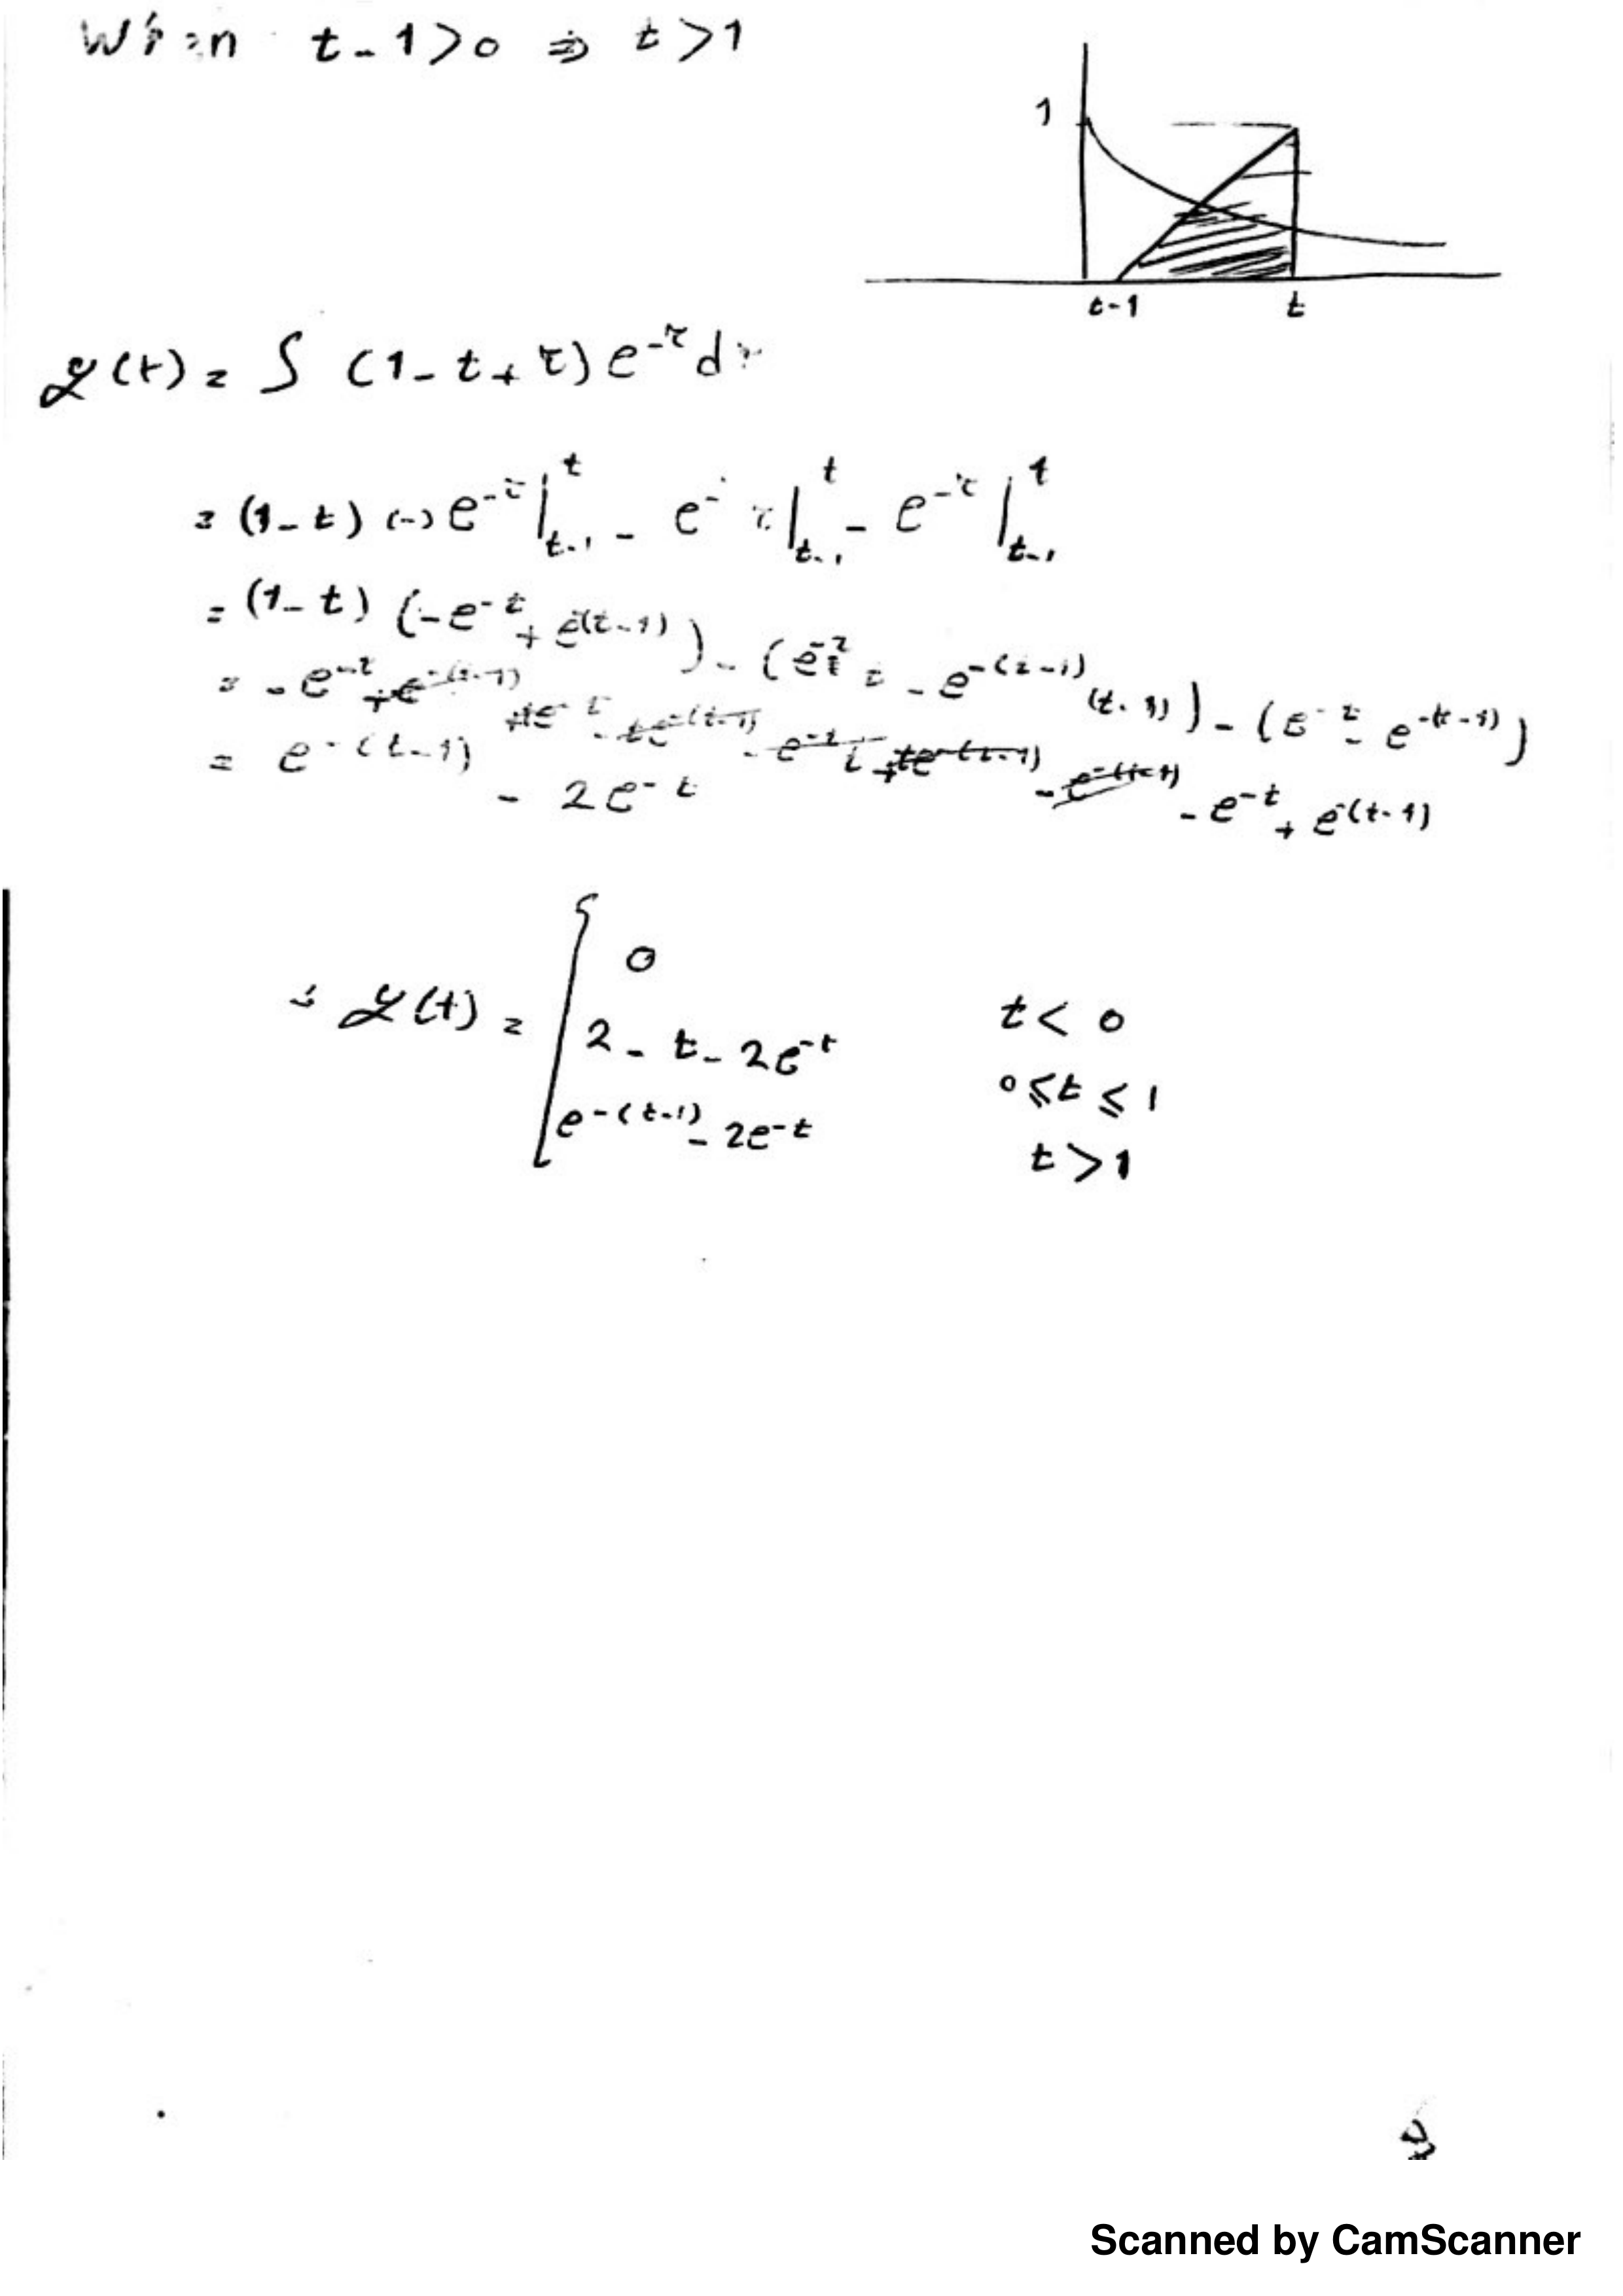 When t-1>0 ⇒ t>1
1
t-1 t
y(t) = ∫ (1-t+τ) e^-τ d
= (1-t) (-) e^-τ |_t-1^t - e^- τ |_t-1^t - e^-τ |_t-1^t
= (1-t) (-e^-t + e^-(t-1)) - (e^-t t - e^-(t-1) (t-1)) - (e^-t - e^-(t-1))
= -e^-t + e^-(t-1) + te^-t - te^-(t-1) - e^-t t + te^-(t-1) - e^-(t-1) - e^-t + e^-(t-1)
= e^-(t-1) - 2e^-t
∴ y(t) = {
0 t < 0
2 - t - 2e^-t 0 ≤ t ≤ 1
e^-(t-1) - 2e^-t t > 1
Scanned by CamScanner